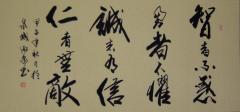 智者不惑
勇者不懼
誠者有信
仁者無敵
甲午年秋月於